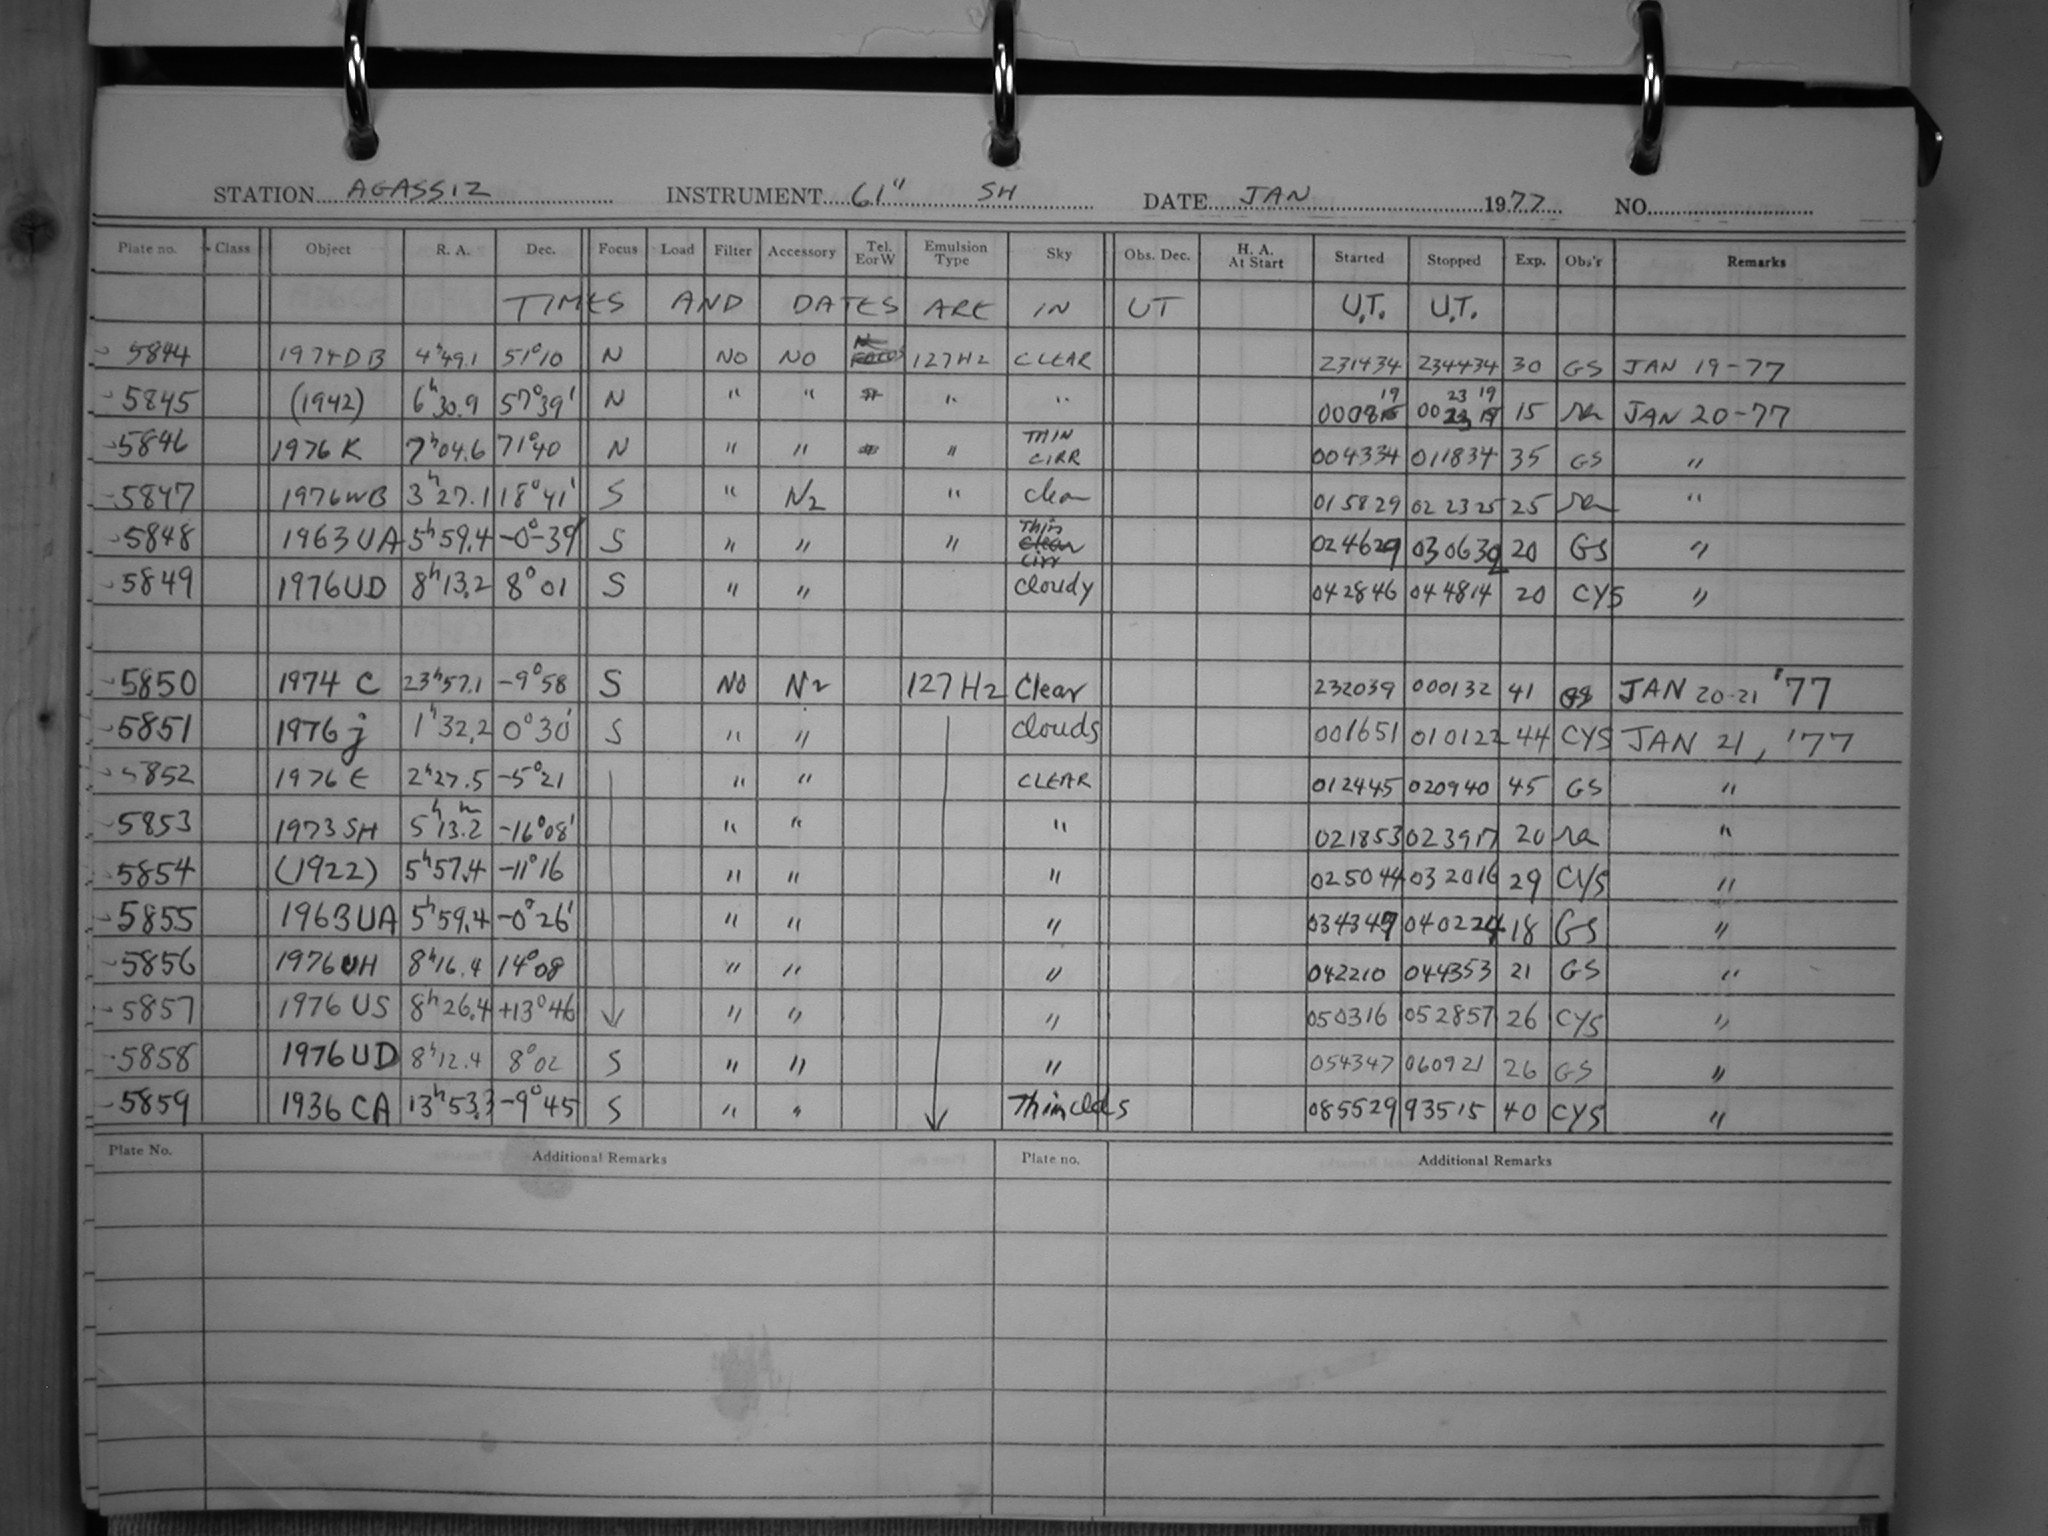 STATION AGASSIZ INSTRUMENT 61" SH DATE JAN 1977 NO.
Plate no. Class Object R. A. Dec. Focus Load Filter Accessory Tel. E or W Emulsion Type Sky Obs. Dec. H. A. At Start Started Stopped Exp. Obs'r Remarks
TIMES AND DATES ARE IN UT U.T. U.T.
5844 1974DB 4h49.1 51°10 N NO NO 127H2 CLEAR 231434 234434 30 GS JAN 19-77
5845 (1942) 6h30.9 57°39' N " " " " 000819 002319 15 ra JAN 20-77
5846 1976 K 7h04.6 71°40 N " " " THIN CIRR 004334 011834 35 GS "
5847 1976WB 3h27.1 18°41' S " N2 " clear 015829 022325 25 ra "
5848 1963UA 5h59.4 -0°39' S " " " Thin cirr 024629 030630 20 GS "
5849 1976UD 8h13.2 8°01 S " " cloudy 042846 044814 20 CYS "
5850 1974 C 23h57.1 -9°58 S NO N2 127H2 Clear 232039 000132 41 GS JAN 20-21 '77
5851 1976 j 1h32.2 0°30' S " " clouds 001651 010122 44 CYS JAN 21, '77
5852 1976 E 2h27.5 -5°21 " " CLEAR 012445 020940 45 GS "
5853 1973SH 5h13.2m -16°08' " " " 021853 023917 20 ra "
5854 (1922) 5h57.4 -11°16 " " " 025044 032016 29 CYS "
5855 1963UA 5h59.4 -0°26' " " " 034349 040224 18 GS "
5856 1976UH 8h16.4 14°08 " " " 042210 044353 21 GS "
5857 1976 US 8h26.4 +13°46 " " " 050316 052857 26 CYS "
5858 1976UD 8h12.4 8°02 S " " " 054347 060921 26 GS "
5859 1936 CA 13h53.3 -9°45 S " " Thin clds 085529 93515 40 CYS "
Plate No. Additional Remarks Plate no. Additional Remarks